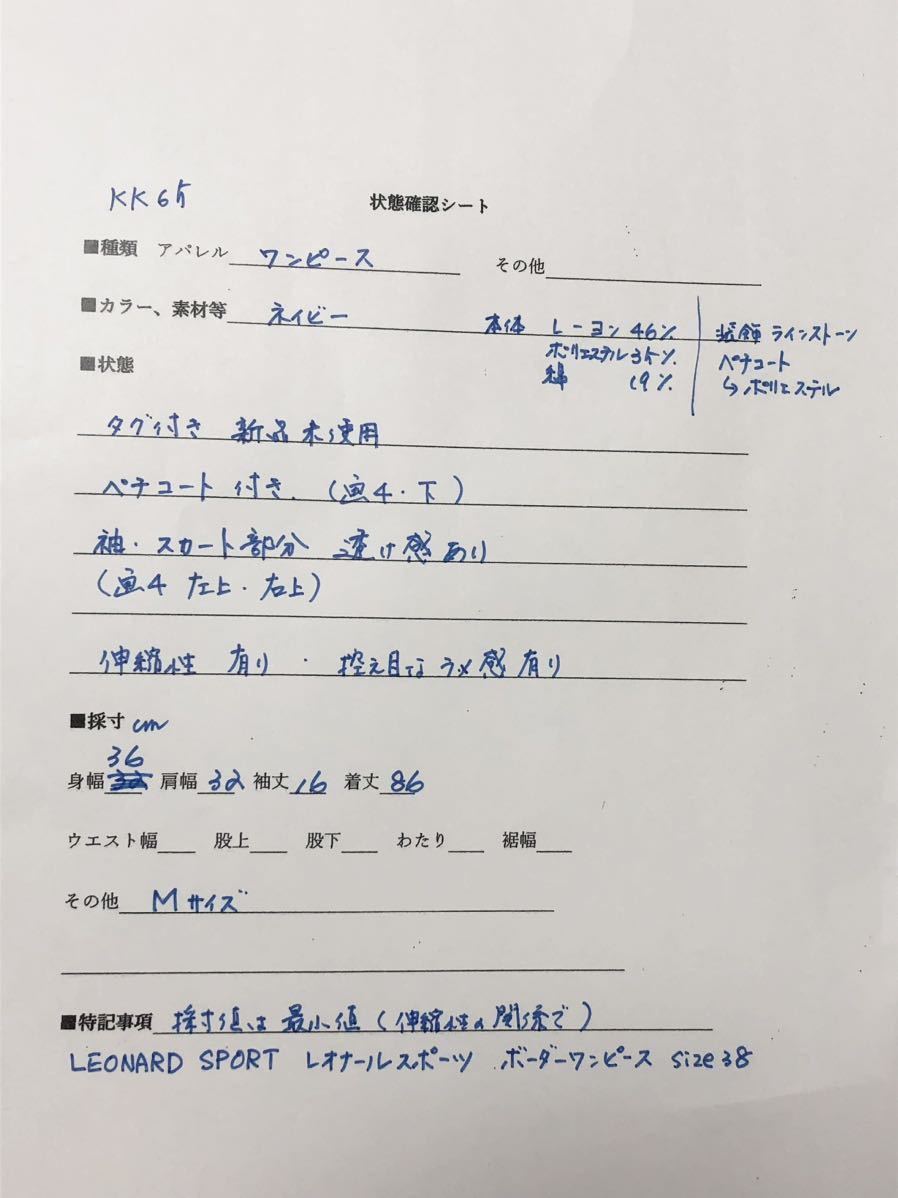 KK65
状態確認シート
■種類 アパレル ワンピース その他
■カラー、素材等 ネイビー 本体 レーヨン 46% 装飾 ラインストーン
ポリエステル 35% ペチコート
綿 19% ↳ポリエステル
■状態
タグ付き 新品未使用
ペチコート付き. (画4・下)
袖・スカート部分 透け感あり
(画4 左上・右上)
伸縮性 有り ・ 控え目なラメ感有り
■採寸 cm
36
身幅 肩幅 32 袖丈 16 着丈 86
ウエスト幅 股上 股下 わたり 裾幅
その他 Mサイズ
■特記事項 採寸値は最小値(伸縮性の関係で)
LEONARD SPORT レオナールスポーツ ボーダーワンピース size 38